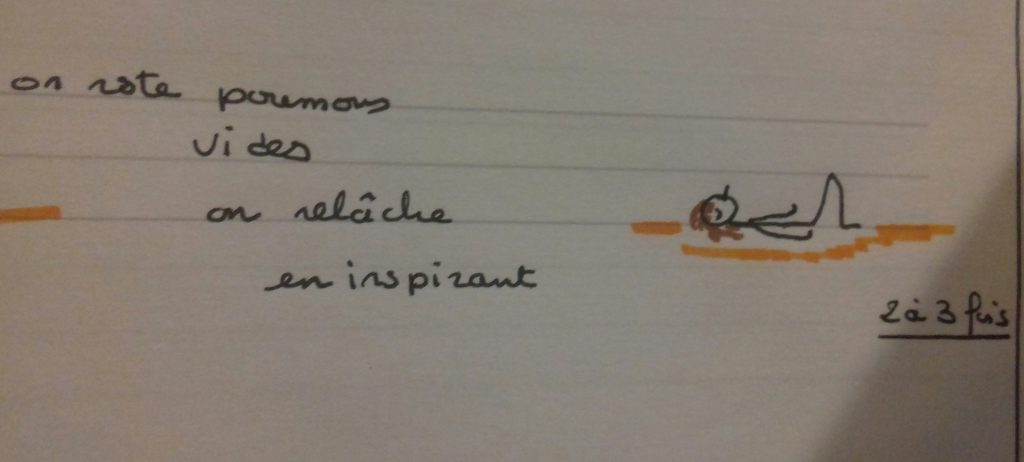 on reste poumons
vides
on relâche
en inspirant
2 à 3 fois